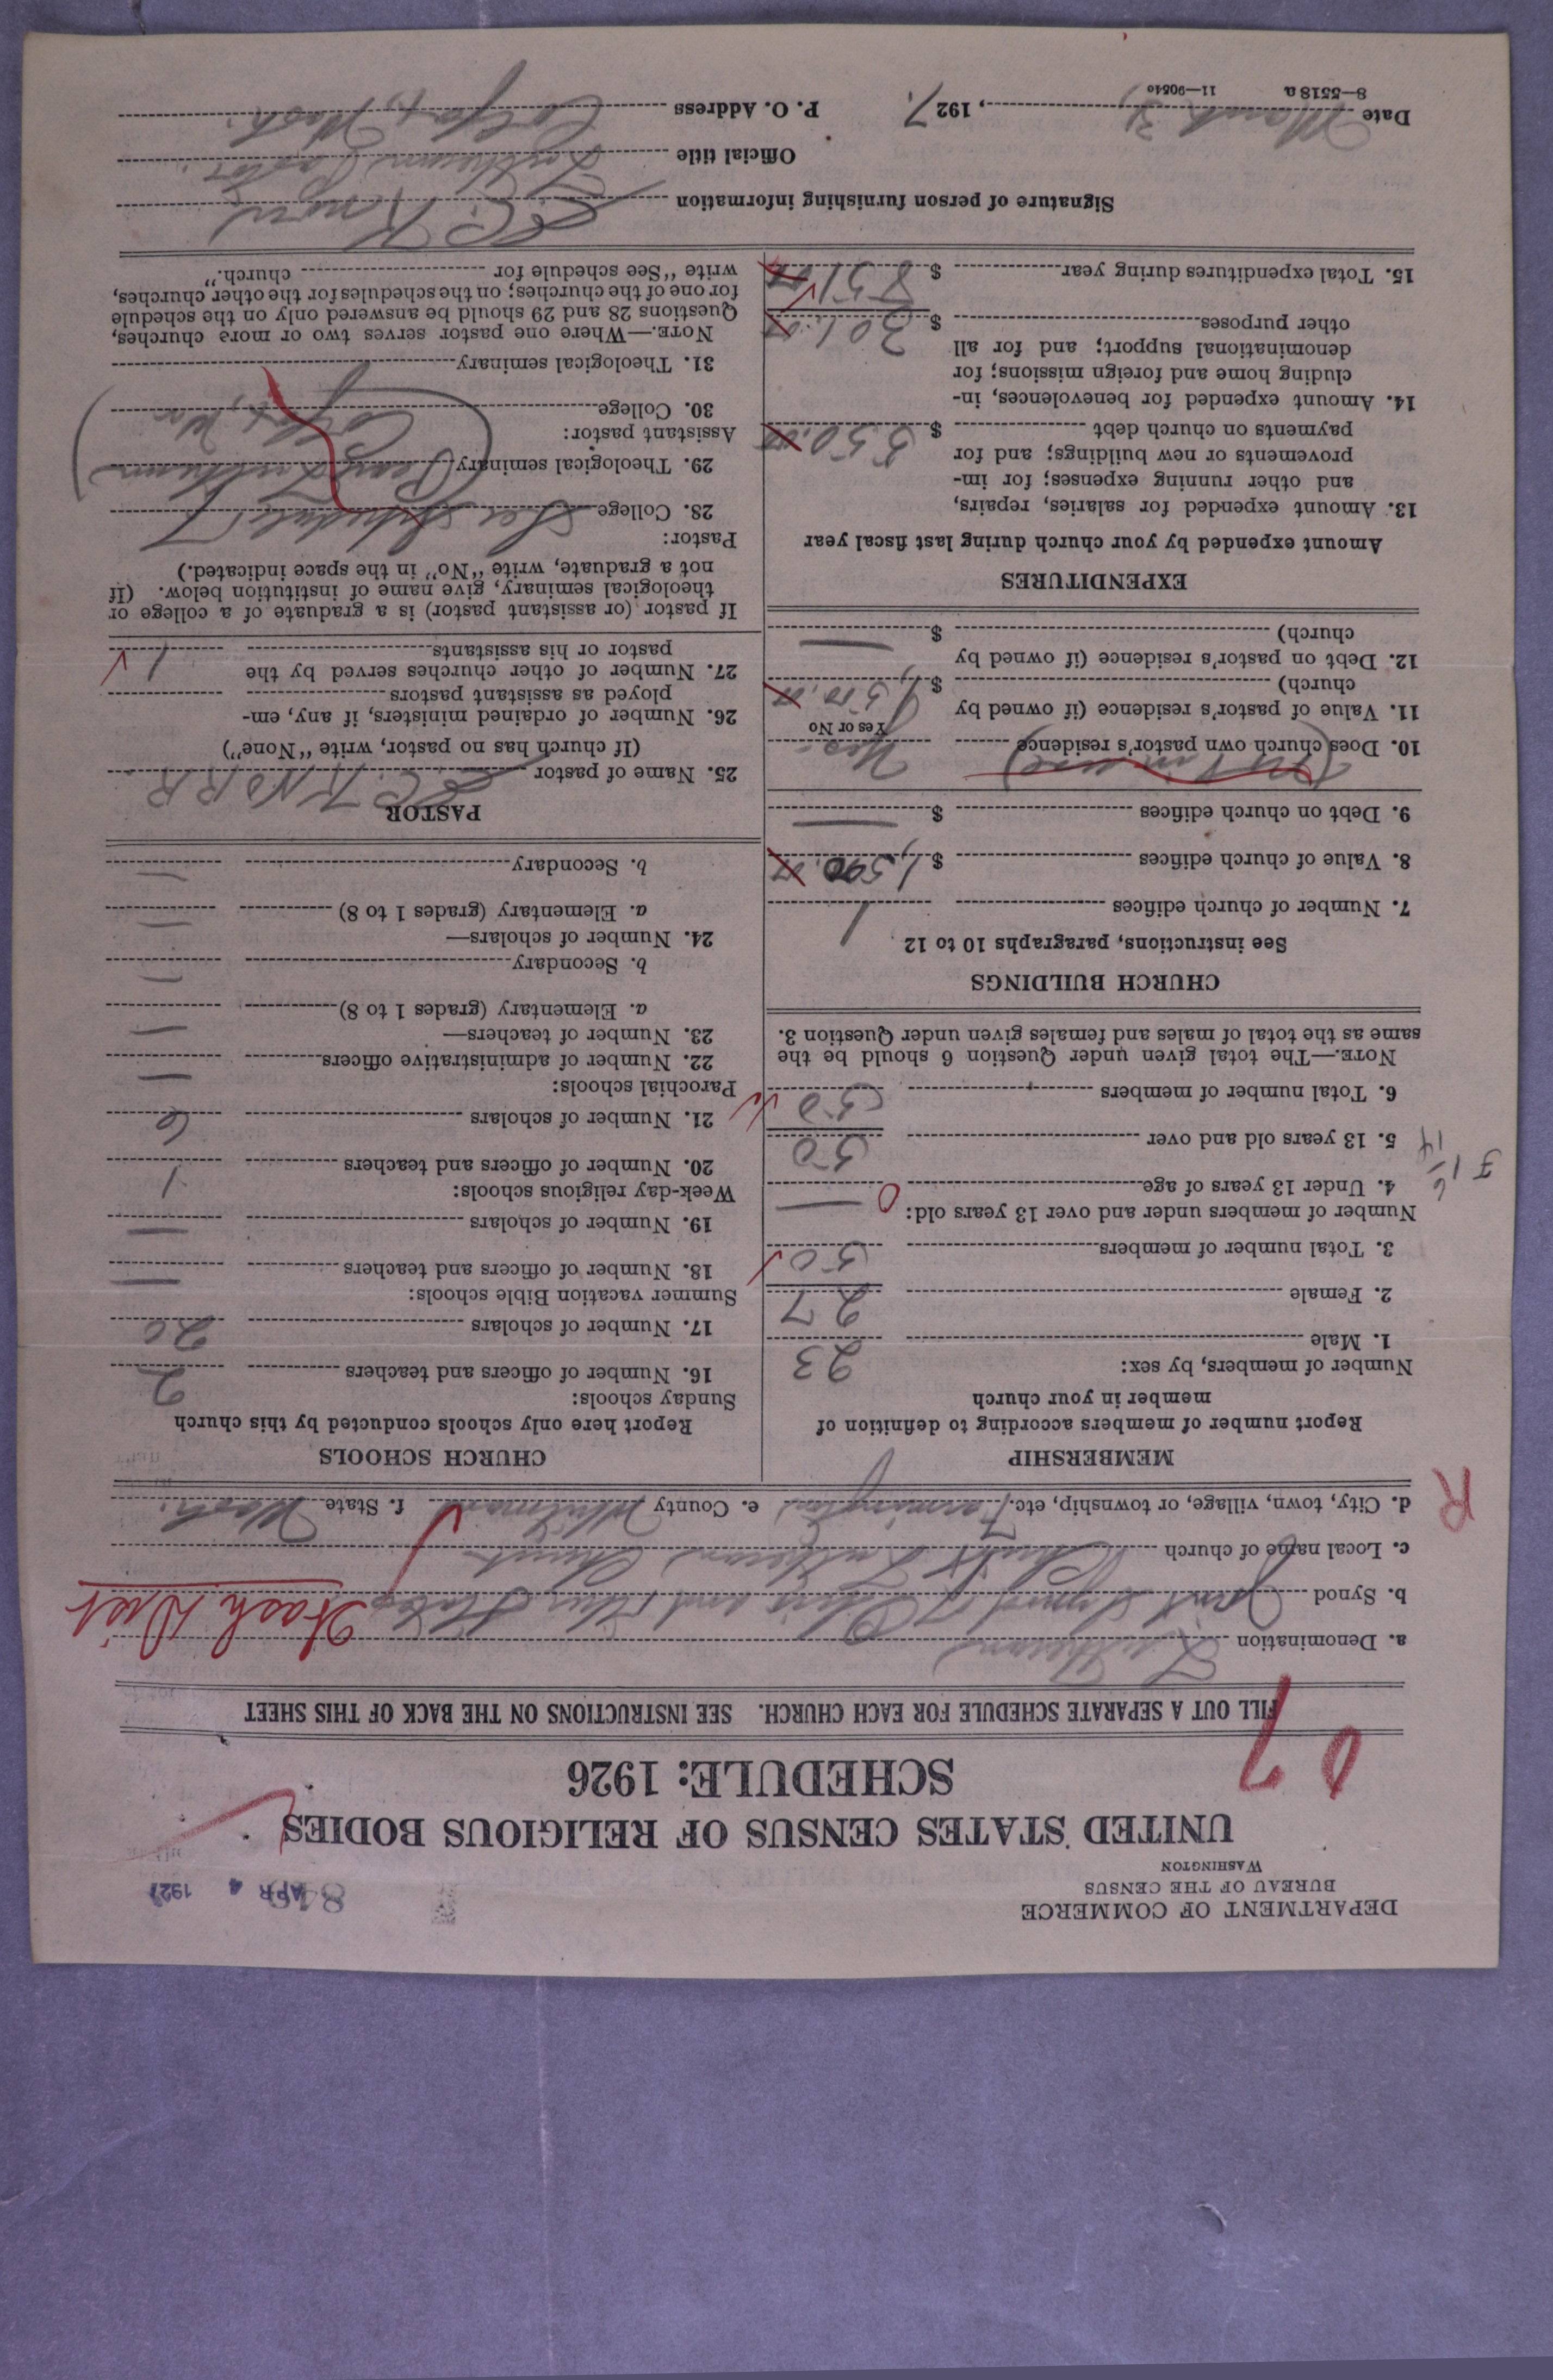 DEPARTMENT OF COMMERCE
BUREAU OF THE CENSUS
WASHINGTON
APR 4 1927
UNITED STATES CENSUS OF RELIGIOUS BODIES
SCHEDULE: 1926
07
FILL OUT A SEPARATE SCHEDULE FOR EACH CHURCH. SEE INSTRUCTIONS ON THE BACK OF THIS SHEET
a. Denomination Lutheran
b. Synod Joint Synod of Ohio and Other States Wash Dist
c. Local name of church Christ Lutheran Church
d. City, town, village, or township, etc. Farmington e. County Whitman f. State Wash.
R
MEMBERSHIP
Report number of members according to definition of
member in your church
Number of members, by sex:
1. Male 23
2. Female 27
3. Total number of members 50
Number of members under and over 13 years old:
4. Under 13 years of age — 0
5. 13 years old and over 50
6. Total number of members 50
NOTE.—The total given under Question 6 should be the
same as the total of males and females given under Question 3.
CHURCH BUILDINGS
See instructions, paragraphs 10 to 12
7. Number of church edifices 1
8. Value of church edifices $ 1,500.00
9. Debt on church edifices $ —
(not in use)
10. Does church own pastor's residence Yes
Yes or No
11. Value of pastor's residence (if owned by
church) $ 1,500.00
12. Debt on pastor's residence (if owned by
church) $ —
EXPENDITURES
Amount expended by your church during last fiscal year
13. Amount expended for salaries, repairs,
and other running expenses; for im-
provements or new buildings; and for
payments on church debt $ 550.00
14. Amount expended for benevolences, in-
cluding home and foreign missions; for
denominational support; and for all
other purposes $ 301.00
15. Total expenditures during year $ 851.00
CHURCH SCHOOLS
Report here only schools conducted by this church
Sunday schools:
16. Number of officers and teachers 2
17. Number of scholars 20
Summer vacation Bible schools:
18. Number of officers and teachers —
19. Number of scholars —
Week-day religious schools:
20. Number of officers and teachers 1
21. Number of scholars 6
Parochial schools:
22. Number of administrative officers —
23. Number of teachers— —
a. Elementary (grades 1 to 8) —
b. Secondary
24. Number of scholars— —
a. Elementary (grades 1 to 8) —
b. Secondary —
PASTOR
25. Name of pastor E. C. KNORR
(If church has no pastor, write "None")
26. Number of ordained ministers, if any, em-
ployed as assistant pastors
27. Number of other churches served by the
pastor or his assistants 1
If pastor (or assistant pastor) is a graduate of a college or
theological seminary, give name of institution below. (If
not a graduate, write "No" in the space indicated.)
Pastor:
28. College See schedule f
29. Theological seminary Lutheran
Assistant pastor: Colfax, Wa
30. College
31. Theological seminary
NOTE.—Where one pastor serves two or more churches,
Questions 28 and 29 should be answered only on the schedule
for one of the churches; on the schedules for the other churches,
write "See schedule for church."
Signature of person furnishing information E. C. Knorr
Official title Lutheran Pastor.
Date March 31, 1927. P. O. Address Colfax, Wash.
8—5518 a 11—90540